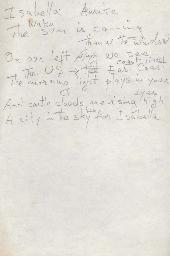 Isabella Awake
Wake
The sun is coming
through the window
On our left we see
coastlines
the US the East Coast
The morning light plays in your
eyes
And castle clouds are rising high
A city in the sky for Isabella